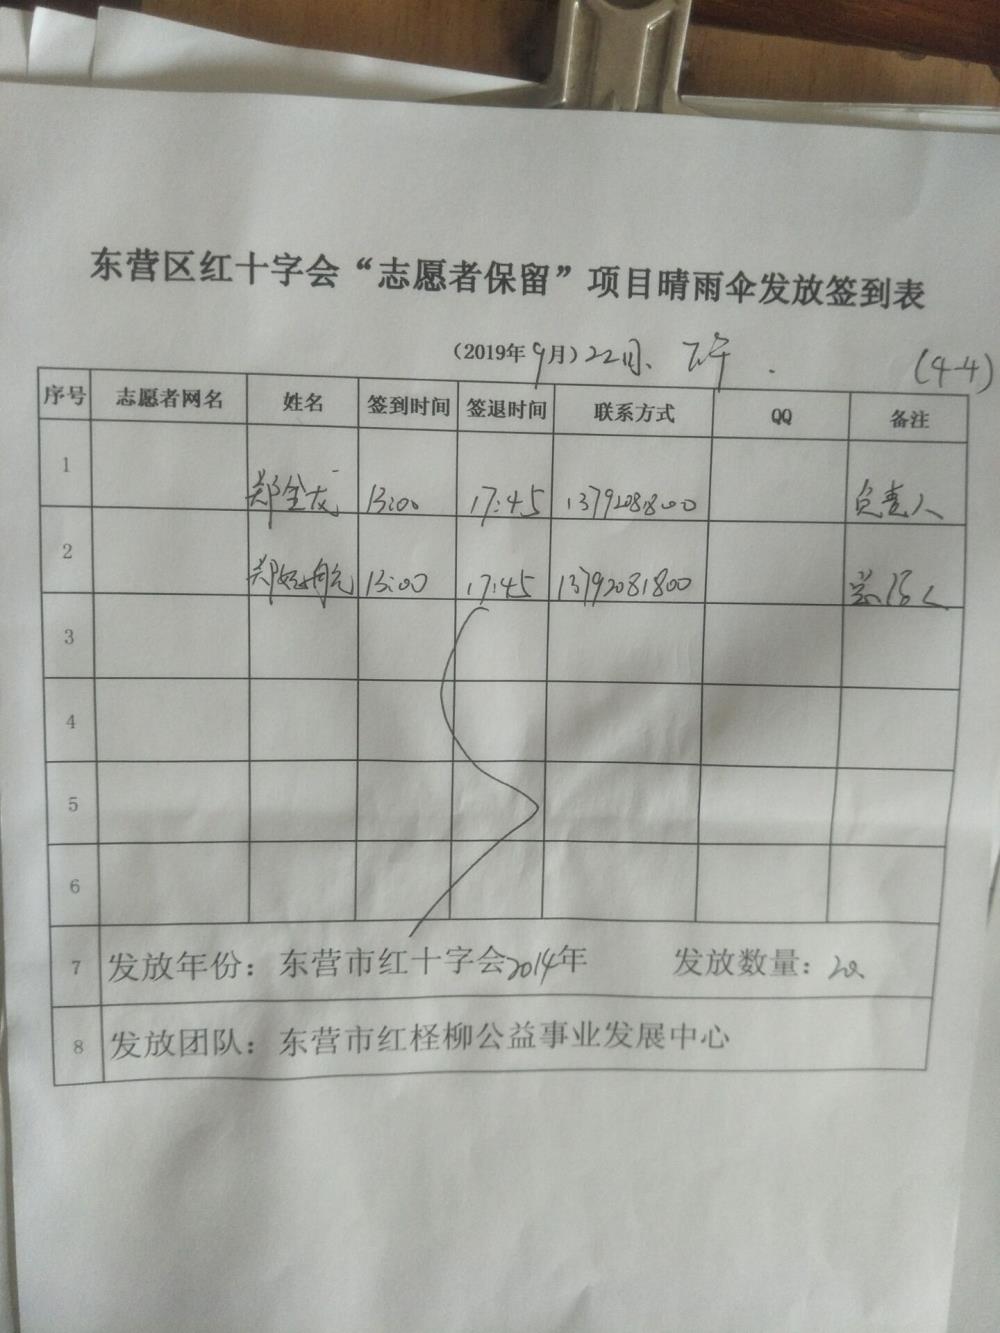 东营区红十字会“志愿者保留”项目晴雨伞发放签到表
（2019年9月）22日、下午 .
(4-4)
序号 志愿者网名 姓名 签到时间 签退时间 联系方式 QQ 备注
1 郑金龙 13:00 17:45 13792081800 负责人
2 郑 航 13:00 17:45 13792081800
3
4
5
6
7 发放年份：东营市红十字会2014年 发放数量：2
8 发放团队：东营市红柽柳公益事业发展中心